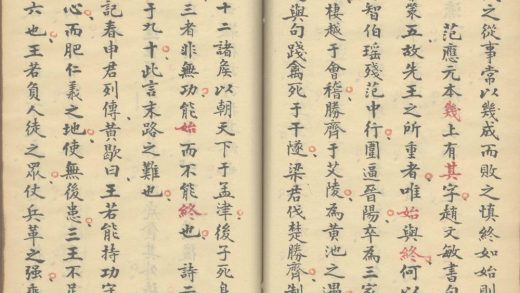 之從事常以幾成而敗之慎終如始則
范應元本幾上有其字趙文敏書
策五故先王之所重者唯始與終何以
智伯瑶殘范中行圍逼晉陽卒為三家
棲越于會稽勝齊于艾陵為黃池之遇
與句踐禽死于干隧梁君伐楚勝齊制
十二諸矦以朝天下于孟津後子死身
三者非無功能始而不能終也 詩
于九十此言末路之難也
記春申君列傳黃歇曰王若能持功守
心而肥仁義之地使無後患三王不足
六也王若負人徒之眾仗兵革之强